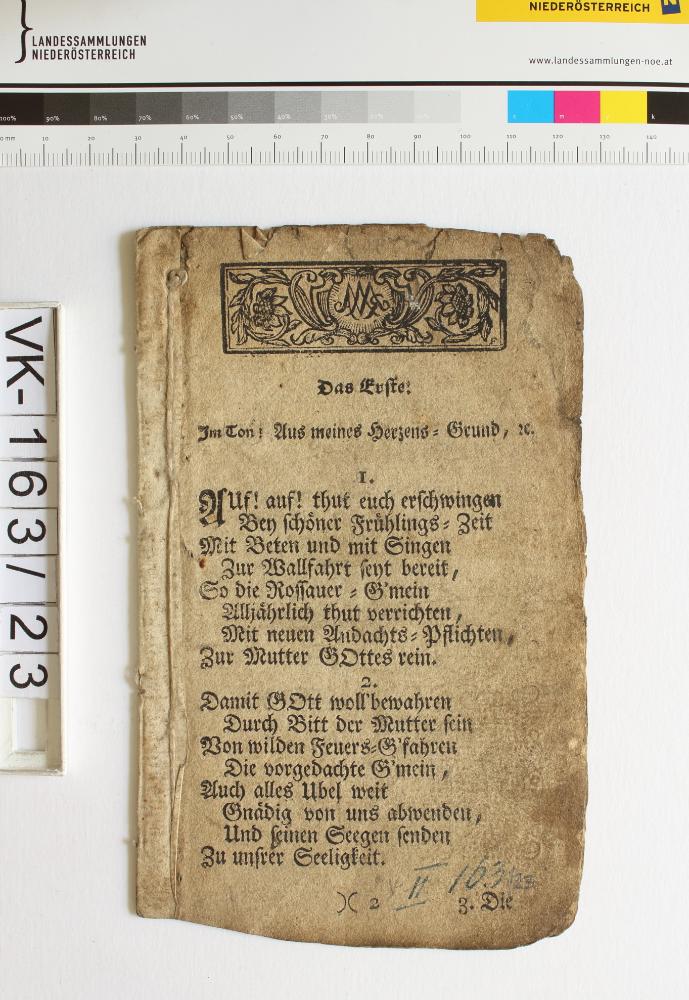 NIEDERÖSTERREICH
LANDESSAMMLUNGEN
NIEDERÖSTERREICH
www.landessammlungen-noe.at
100% 90% 80% 70% 60% 50% 40% 30% 20% 10% c m y k
0 mm 10 20 30 40 50 60 70 80 90 100 110 120 130 140
VK-163/23
Das Erste:
Im Ton: Aus meines Herzens-Grund, ꝛc.
1.
AUf! auf! thut euch erschwingen
Bey schöner Frühlings-Zeit
Mit Beten und mit Singen
Zur Wallfahrt seyt bereit,
So die Rossauer-G'mein
Alljährlich thut verrichten,
Mit neuen Andachts-Pflichten,
Zur Mutter GOttes rein.
2.
Damit GOtt woll'bewahren
Durch Bitt der Mutter sein
Von wilden Feuers-G'fahren
Die vorgedachte G'mein,
Auch alles Ubel weit
Gnädig von uns abwenden,
Und seinen Seegen senden
Zu unsrer Seeligkeit.
II 163/23
)( 2 3. Die